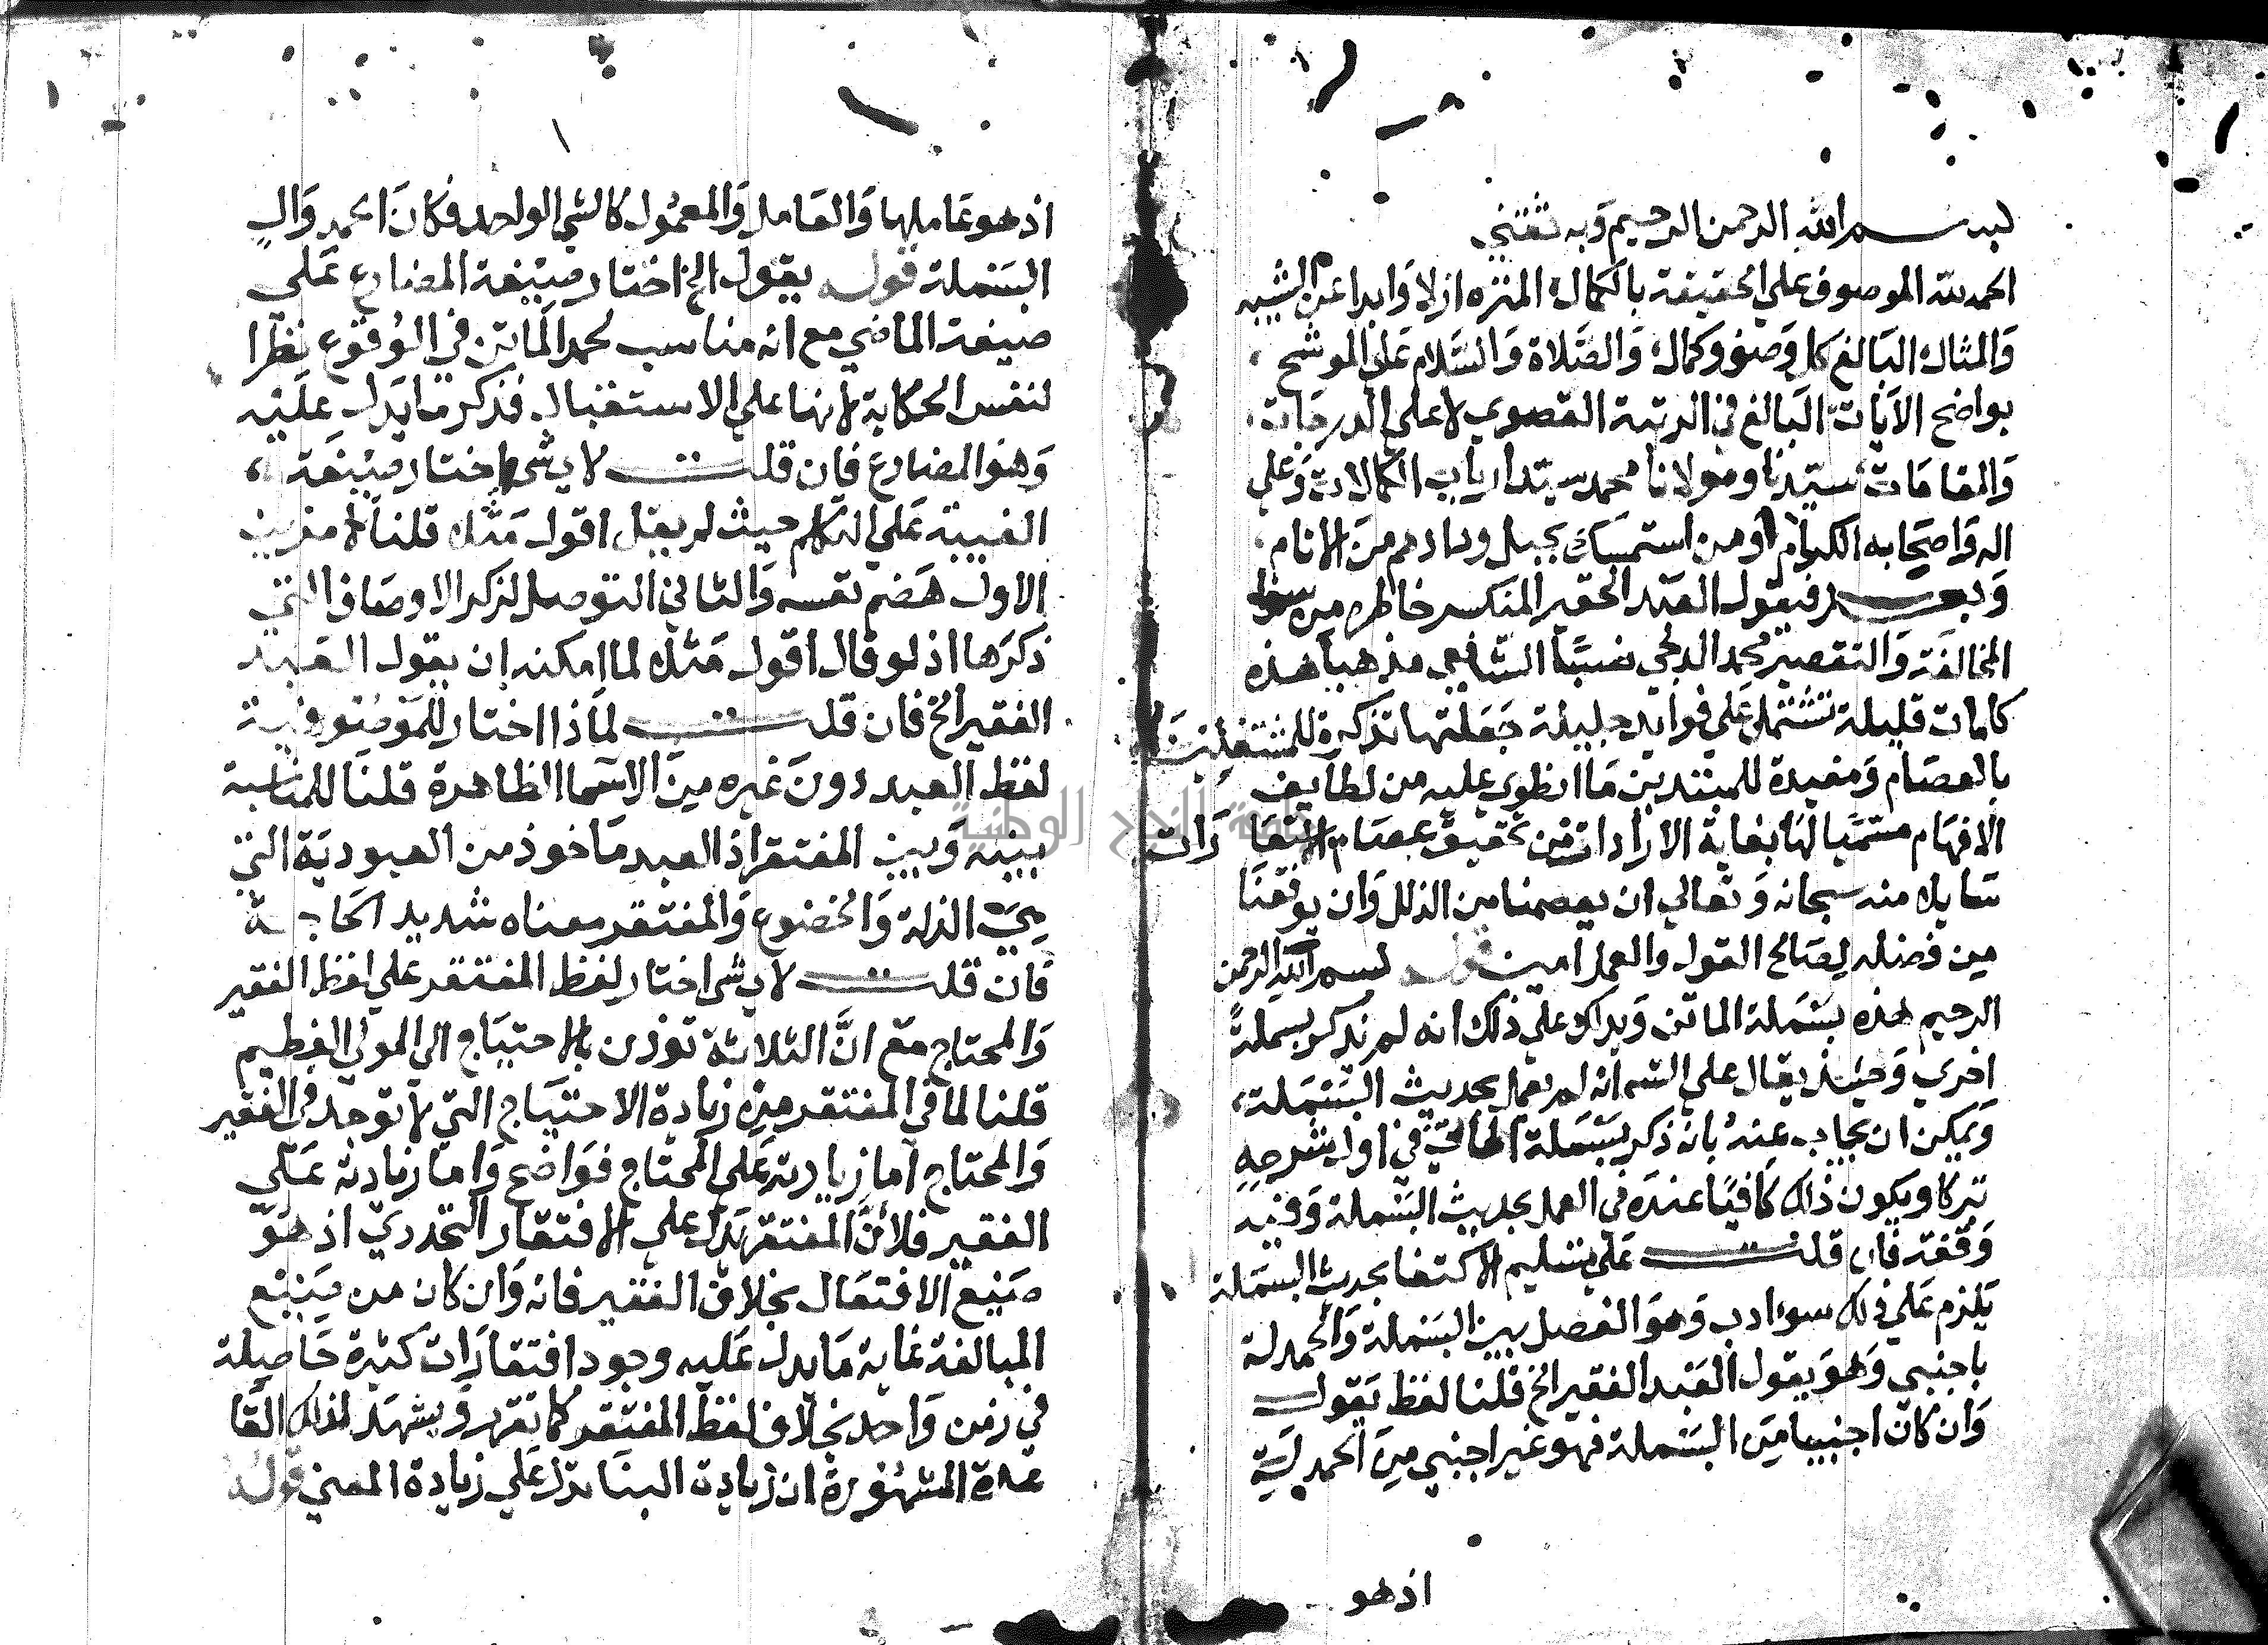 بسم الله الرحمن الرحيم وبه ثقتي
الحمد لله الموصوف على الحقيقة بالكمال المنزه ازلا وابدا عن الشبيه
والمثال البالغ كل وصف وكمال والصلاة والسلام على الموشح
بواضح الآيات البالغ في الرتبة القصوى لاعلى الدرجات
والمقامات سيدنا ومولانا محمد سيد ارباب الكمالات وعلى
اله واصحابه الكرام ومن استمسك بحبل ودادهم من الانام
وبعد فيقول العبد الحقير المنكسر خاطره من سوا
المخالفة والتقصير محمد الدلجي نسبا الشافعي مذهبا هذه
كلمات قليلة تشتمل على فوايد جليلة جعلتها تذكرة للمشتغلين
بالعصام ومفيدة للمبتدين ما انطوى عليه من لطايف
الافهام مسميا لها بغاية الارادات من تحقيق عصام الاستعارات
سايلا منه سبحانه وتعالى ان يعصمنا من الزلل وان يوفقنا
من فضله لصالح القول والعمل امين قوله بسم الله الرحمن
الرحيم هذه بسملة الماتن ويدلك على ذلك انه لم يذكر بسملة
اخرى وحينئذ يقال على الشم انه لم يعمل بحديث البسملة
ويمكن ان يجاب عنه بان ذكر بسملة الماتن في اول شرحه
تبركا ويكون ذلك كافيا عنده في العمل بحديث البسملة وفيه
وقفة فان قلت على تسليم الاكتفا بحديث البسملة
يلزم على ذلك سوء ادب وهو الفصل بين البسملة والحمدلة
باجنبي وهو يقول العبد الفقير الخ قلنا لفظ يقول
وان كان اجنبيا من البسملة فهو غير اجنبي من الحمدلة
اذ هو
اذ هو عاملها والعامل والمعمول كالشي الواحد فكان الحمد وال
البسملة قوله يقول الخ اختار صيغة المضارع على
صيغة الماضي مع انه مناسب لحمد الماتن في الوقوع نظرا
لنفس الحكاية لانها على الاستقبال فذكر ما يدل عليه
وهو المضارع فان قلت لاي شي اختار صيغة
الغيبة على التكلم حيث لم يقل اقول مثلا قلنا لامرين
الاول هضم نفسه والثاني التوصل لذكر الاوصاف التي
ذكرها اذ لو قال اقول مثلا لما امكنه ان يقول العبد
الفقير الخ فان قلت لماذا اختار للموصوفية
لفظ العبد دون غيره من الاسما الظاهرة قلنا للمناسبة
بينه وبين المفتقر اذ العبد ماخوذ من العبودية التي
هي الذلة والخضوع والمفتقر معناه شديد الحاجة
فان قلت لاي شي اختار لفظ المفتقر على لفظ الفقير
والمحتاج مع ان الثلاثة توذن بالاحتياج الى المولى العظيم
قلنا لما في المفتقر من زيادة الاحتياج التي لا توجد في الفقير
والمحتاج اما زيادته على المحتاج فواضح واما زيادته على
الفقير فلان المفتقر يدل على الافتقار التجددي اذ هو
صيغ الافتعال بخلاف الفقير فانه وان كان من صيغ
المبالغة غاية ما يدل عليه وجود افتقارات كثيرة حاصلة
في زمن واحد بخلاف لفظ المفتقر كما تقرر ويشهد لذلك القا
عدة المشهورة ان زيادة البنا تدل على زيادة المعنى قوله